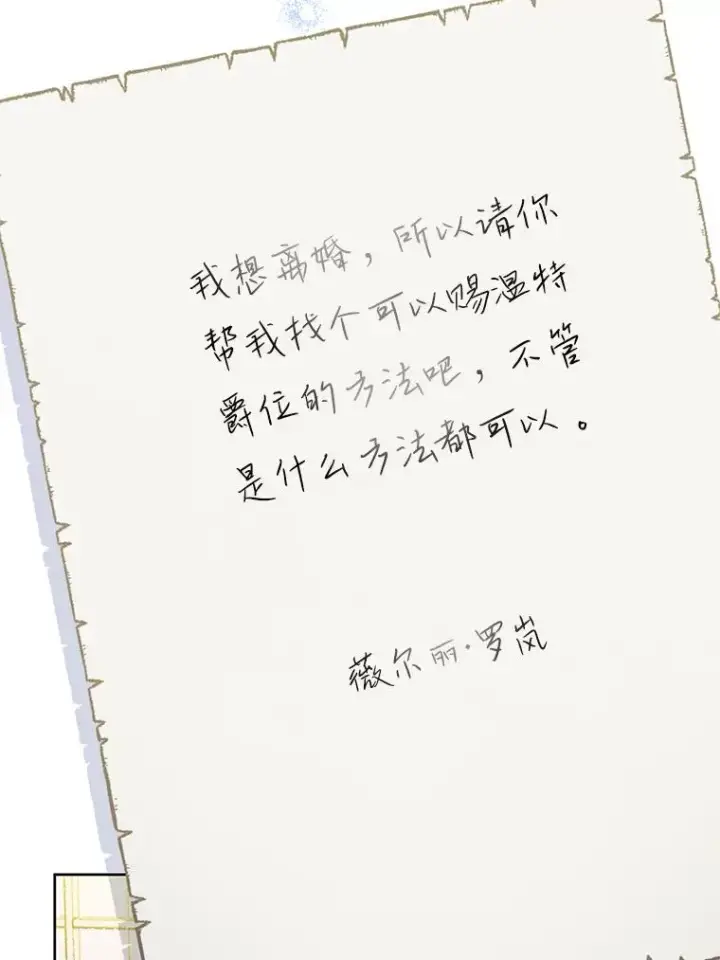 我想离婚，所以请你
帮我找个可以赐温特
爵位的方法吧，不管
是什么方法都可以。
薇尔丽·罗岚